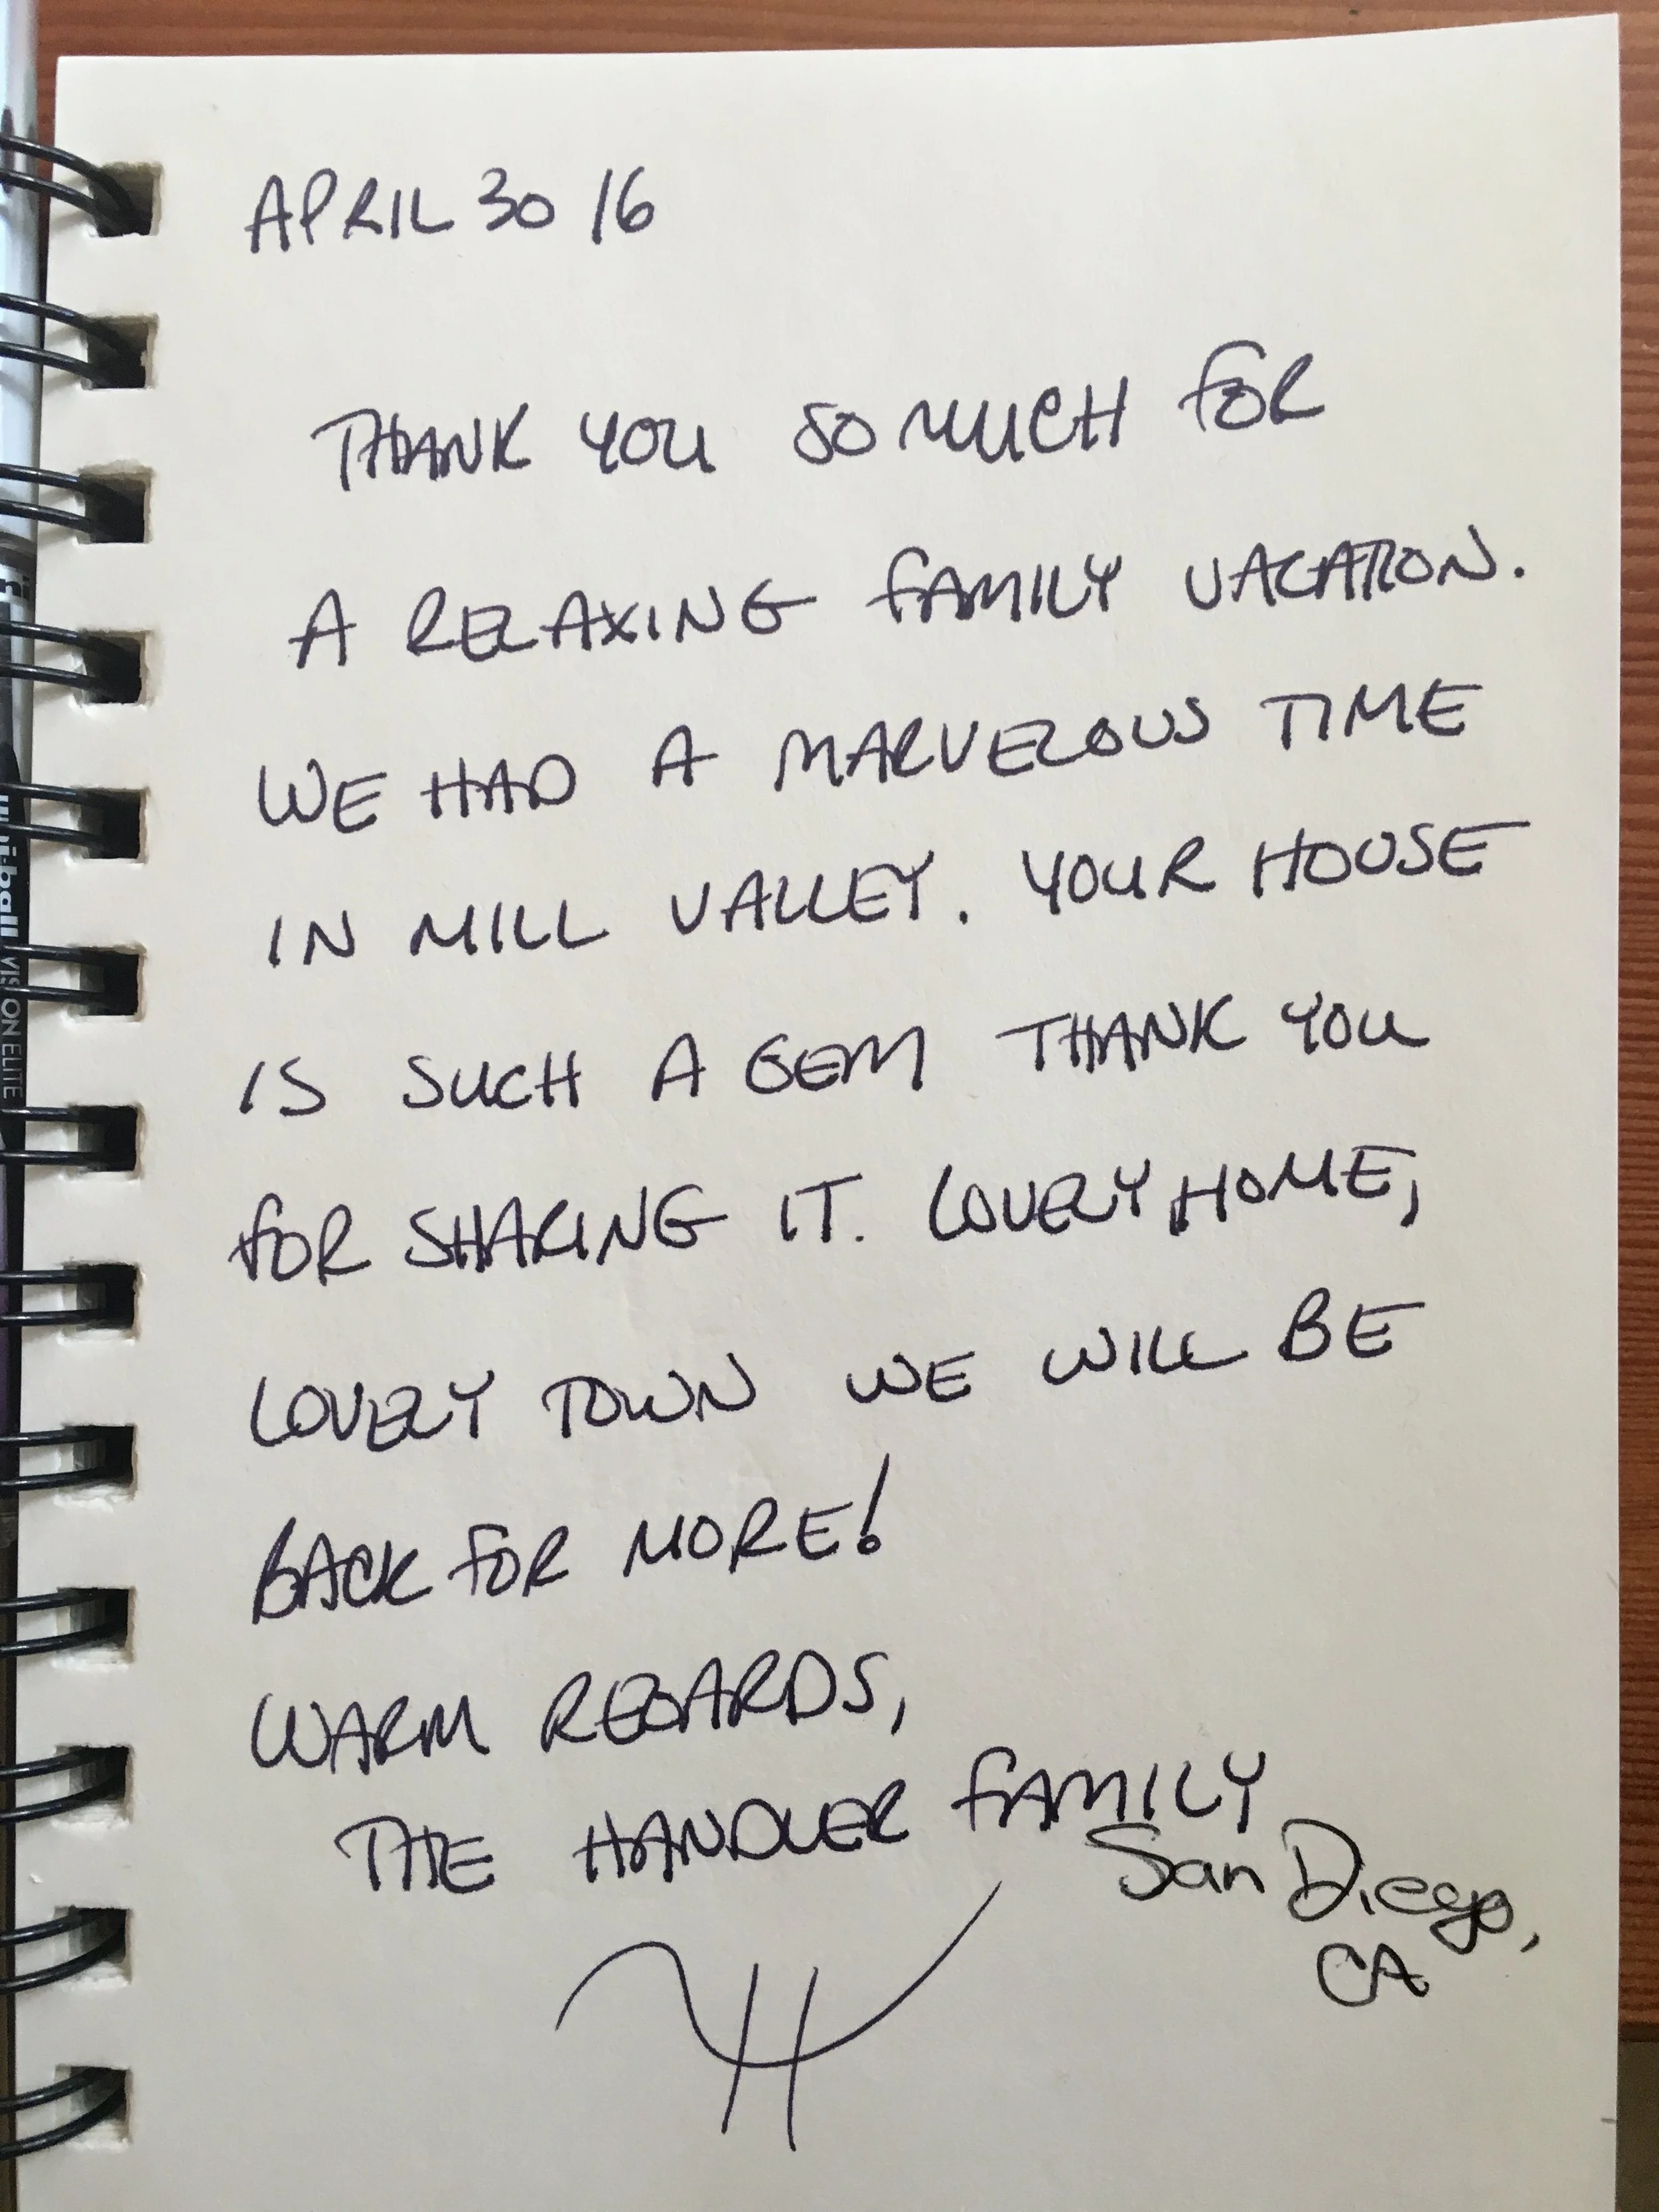 APRIL 30 16
THANK YOU SO MUCH FOR
A RELAXING FAMILY VACATION.
WE HAD A MARVELOUS TIME
IN MILL VALLEY. YOUR HOUSE
IS SUCH A GEM THANK YOU
FOR SHARING IT. LOVELY HOME,
LOVELY TOWN WE WILL BE
BACK FOR MORE!
WARM REGARDS,
THE HANDLER FAMILY
San Diego,
CA
H
uni-ball VISION ELITE